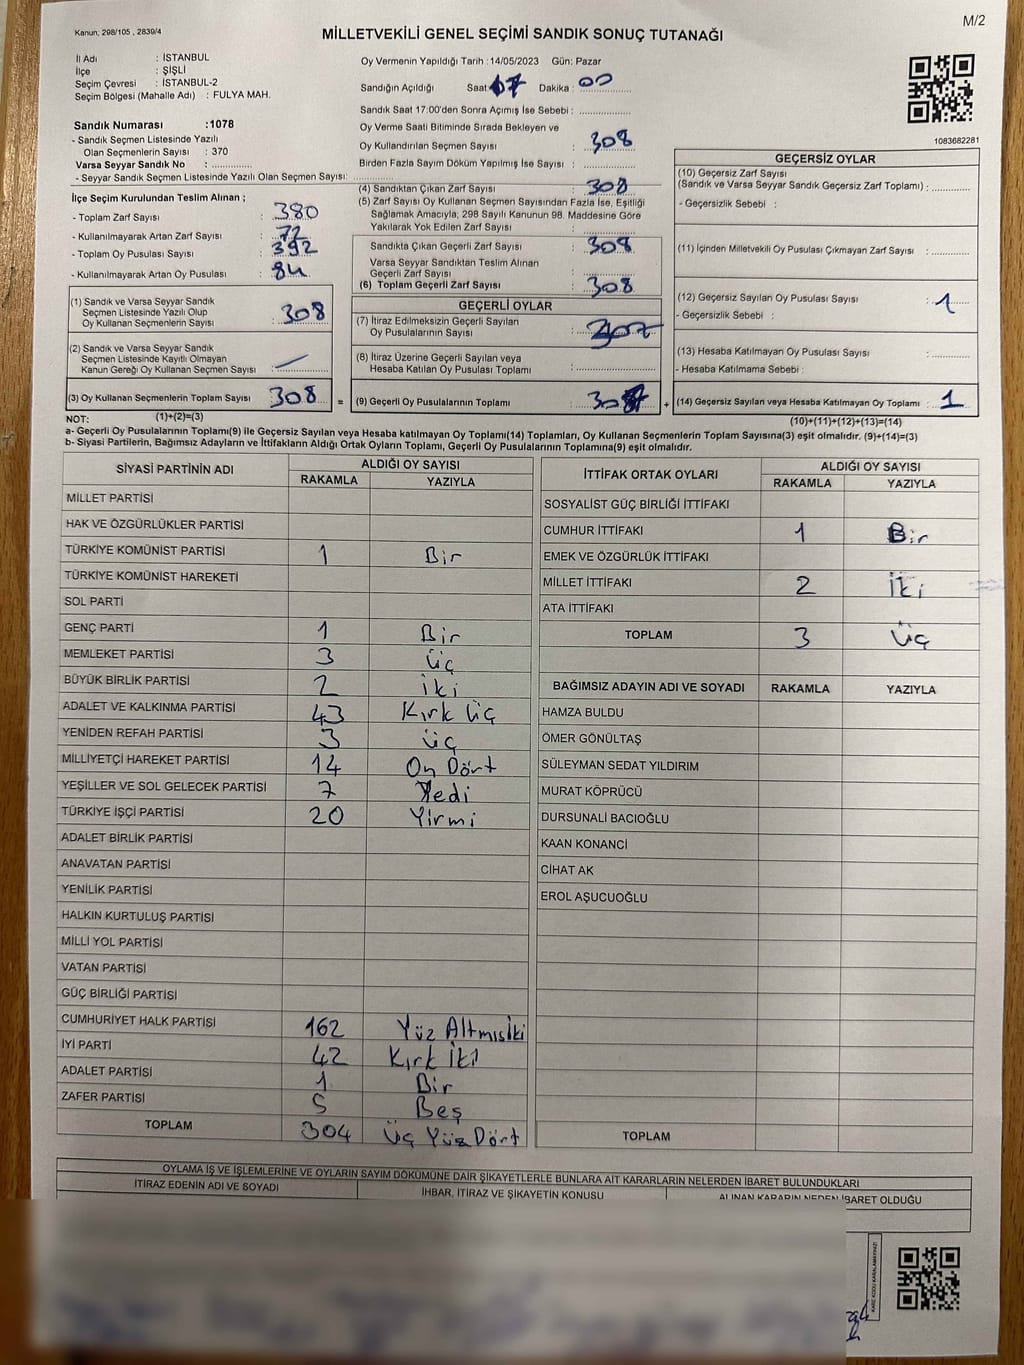 M/2
Kanun; 298/105 , 2839/4
MİLLETVEKİLİ GENEL SEÇİMİ SANDIK SONUÇ TUTANAĞI
İl Adı : İSTANBUL
İlçe : ŞİŞLİ
Seçim Çevresi : İSTANBUL-2
Seçim Bölgesi (Mahalle Adı) : FULYA MAH.
Sandık Numarası :1078
- Sandık Seçmen Listesinde Yazılı
Olan Seçmenlerin Sayısı : 370
Varsa Seyyar Sandık No :
- Seyyar Sandık Seçmen Listesinde Yazılı Olan Seçmen Sayısı:
Oy Vermenin Yapıldığı Tarih :14/05/2023 Gün: Pazar
Sandığın Açıldığı Saat: 17 Dakika : 00
Sandık Saat 17:00'den Sonra Açmış İse Sebebi :
Oy Verme Saati Bitiminde Sırada Bekleyen ve
Oy Kullandırılan Seçmen Sayısı : 308
Birden Fazla Sayım Döküm Yapılmış İse Sayısı :
1083682281
İlçe Seçim Kurulundan Teslim Alınan ;
- Toplam Zarf Sayısı : 380
- Kullanılmayarak Artan Zarf Sayısı : 72
- Toplam Oy Pusulası Sayısı : 392
- Kullanılmayarak Artan Oy Pusulası : 84
(1) Sandık ve Varsa Seyyar Sandık
Seçmen Listesinde Yazılı Olup
Oy Kullanan Seçmenlerin Sayısı : 308
(2) Sandık ve Varsa Seyyar Sandık
Seçmen Listesinde Kayıtlı Olmayan
Kanun Gereği Oy Kullanan Seçmen Sayısı : —
(3) Oy Kullanan Seçmenlerin Toplam Sayısı : 308
(1)+(2)=(3)
(4) Sandıktan Çıkan Zarf Sayısı : 308
(5) Zarf Sayısı Oy Kullanan Seçmen Sayısından Fazla İse, Eşitliği
Sağlamak Amacıyla; 298 Sayılı Kanunun 98. Maddesine Göre
Yakılarak Yok Edilen Zarf Sayısı :
Sandıkta Çıkan Geçerli Zarf Sayısı : 308
Varsa Seyyar Sandıktan Teslim Alınan
Geçerli Zarf Sayısı :
(6) Toplam Geçerli Zarf Sayısı : 308
GEÇERLİ OYLAR
(7) İtiraz Edilmeksizin Geçerli Sayılan
Oy Pusulalarının Sayısı : 307
(8) İtiraz Üzerine Geçerli Sayılan veya
Hesaba Katılan Oy Pusulası Toplamı :
= (9) Geçerli Oy Pusulalarının Toplamı : 307 +
GEÇERSİZ OYLAR
(10) Geçersiz Zarf Sayısı
(Sandık ve Varsa Seyyar Sandık Geçersiz Zarf Toplamı) :
- Geçersizlik Sebebi :
(11) İçinden Milletvekili Oy Pusulası Çıkmayan Zarf Sayısı :
(12) Geçersiz Sayılan Oy Pusulası Sayısı : 1
- Geçersizlik Sebebi :
(13) Hesaba Katılmayan Oy Pusulası Sayısı :
- Hesaba Katılmama Sebebi :
(14) Geçersiz Sayılan veya Hesaba Katılmayan Oy Toplamı : 1
(10)+(11)+(12)+(13)=(14)
NOT:
a- Geçerli Oy Pusulalarının Toplamı(9) ile Geçersiz Sayılan veya Hesaba katılmayan Oy Toplamı(14) Toplamları, Oy Kullanan Seçmenlerin Toplam Sayısına(3) eşit olmalıdır. (9)+(14)=(3)
b- Siyasi Partilerin, Bağımsız Adayların ve İttifakların Aldığı Ortak Oyların Toplamı, Geçerli Oy Pusulalarının Toplamına(9) eşit olmalıdır.
SİYASİ PARTİNİN ADI ALDIĞI OY SAYISI
RAKAMLA YAZIYLA
MİLLET PARTİSİ
HAK VE ÖZGÜRLÜKLER PARTİSİ
TÜRKİYE KOMÜNİST PARTİSİ 1 Bir
TÜRKİYE KOMÜNİST HAREKETİ
SOL PARTİ
GENÇ PARTİ 1 Bir
MEMLEKET PARTİSİ 3 Üç
BÜYÜK BİRLİK PARTİSİ 2 İki
ADALET VE KALKINMA PARTİSİ 43 Kırk Üç
YENİDEN REFAH PARTİSİ 3 Üç
MİLLİYETÇİ HAREKET PARTİSİ 14 On Dört
YEŞİLLER VE SOL GELECEK PARTİSİ 7 Yedi
TÜRKİYE İŞÇİ PARTİSİ 20 Yirmi
ADALET BİRLİK PARTİSİ
ANAVATAN PARTİSİ
YENİLİK PARTİSİ
HALKIN KURTULUŞ PARTİSİ
MİLLİ YOL PARTİSİ
VATAN PARTİSİ
GÜÇ BİRLİĞİ PARTİSİ
CUMHURİYET HALK PARTİSİ 162 Yüz Altmışiki
İYİ PARTİ 42 Kırk İki
ADALET PARTİSİ 1 Bir
ZAFER PARTİSİ 5 Beş
TOPLAM 304 Üç Yüz Dört
İTTİFAK ORTAK OYLARI ALDIĞI OY SAYISI
RAKAMLA YAZIYLA
SOSYALİST GÜÇ BİRLİĞİ İTTİFAKI
CUMHUR İTTİFAKI 1 Bir
EMEK VE ÖZGÜRLÜK İTTİFAKI
MİLLET İTTİFAKI 2 İki
ATA İTTİFAKI
TOPLAM 3 Üç
BAĞIMSIZ ADAYIN ADI VE SOYADI RAKAMLA YAZIYLA
HAMZA BULDU
ÖMER GÖNÜLTAŞ
SÜLEYMAN SEDAT YILDIRIM
MURAT KÖPRÜCÜ
DURSUNALİ BACIOĞLU
KAAN KONANCİ
CİHAT AK
EROL AŞUCUOĞLU
TOPLAM
OYLAMA İŞ VE İŞLEMLERİNE VE OYLARIN SAYIM DÖKÜMÜNE DAİR ŞİKAYETLERLE BUNLARA AİT KARARLARIN NELERDEN İBARET BULUNDUKLARI
İTİRAZ EDENİN ADI VE SOYADI İHBAR, İTİRAZ VE ŞİKAYETİN KONUSU ALINAN KARARIN NEDEN İBARET OLDUĞU